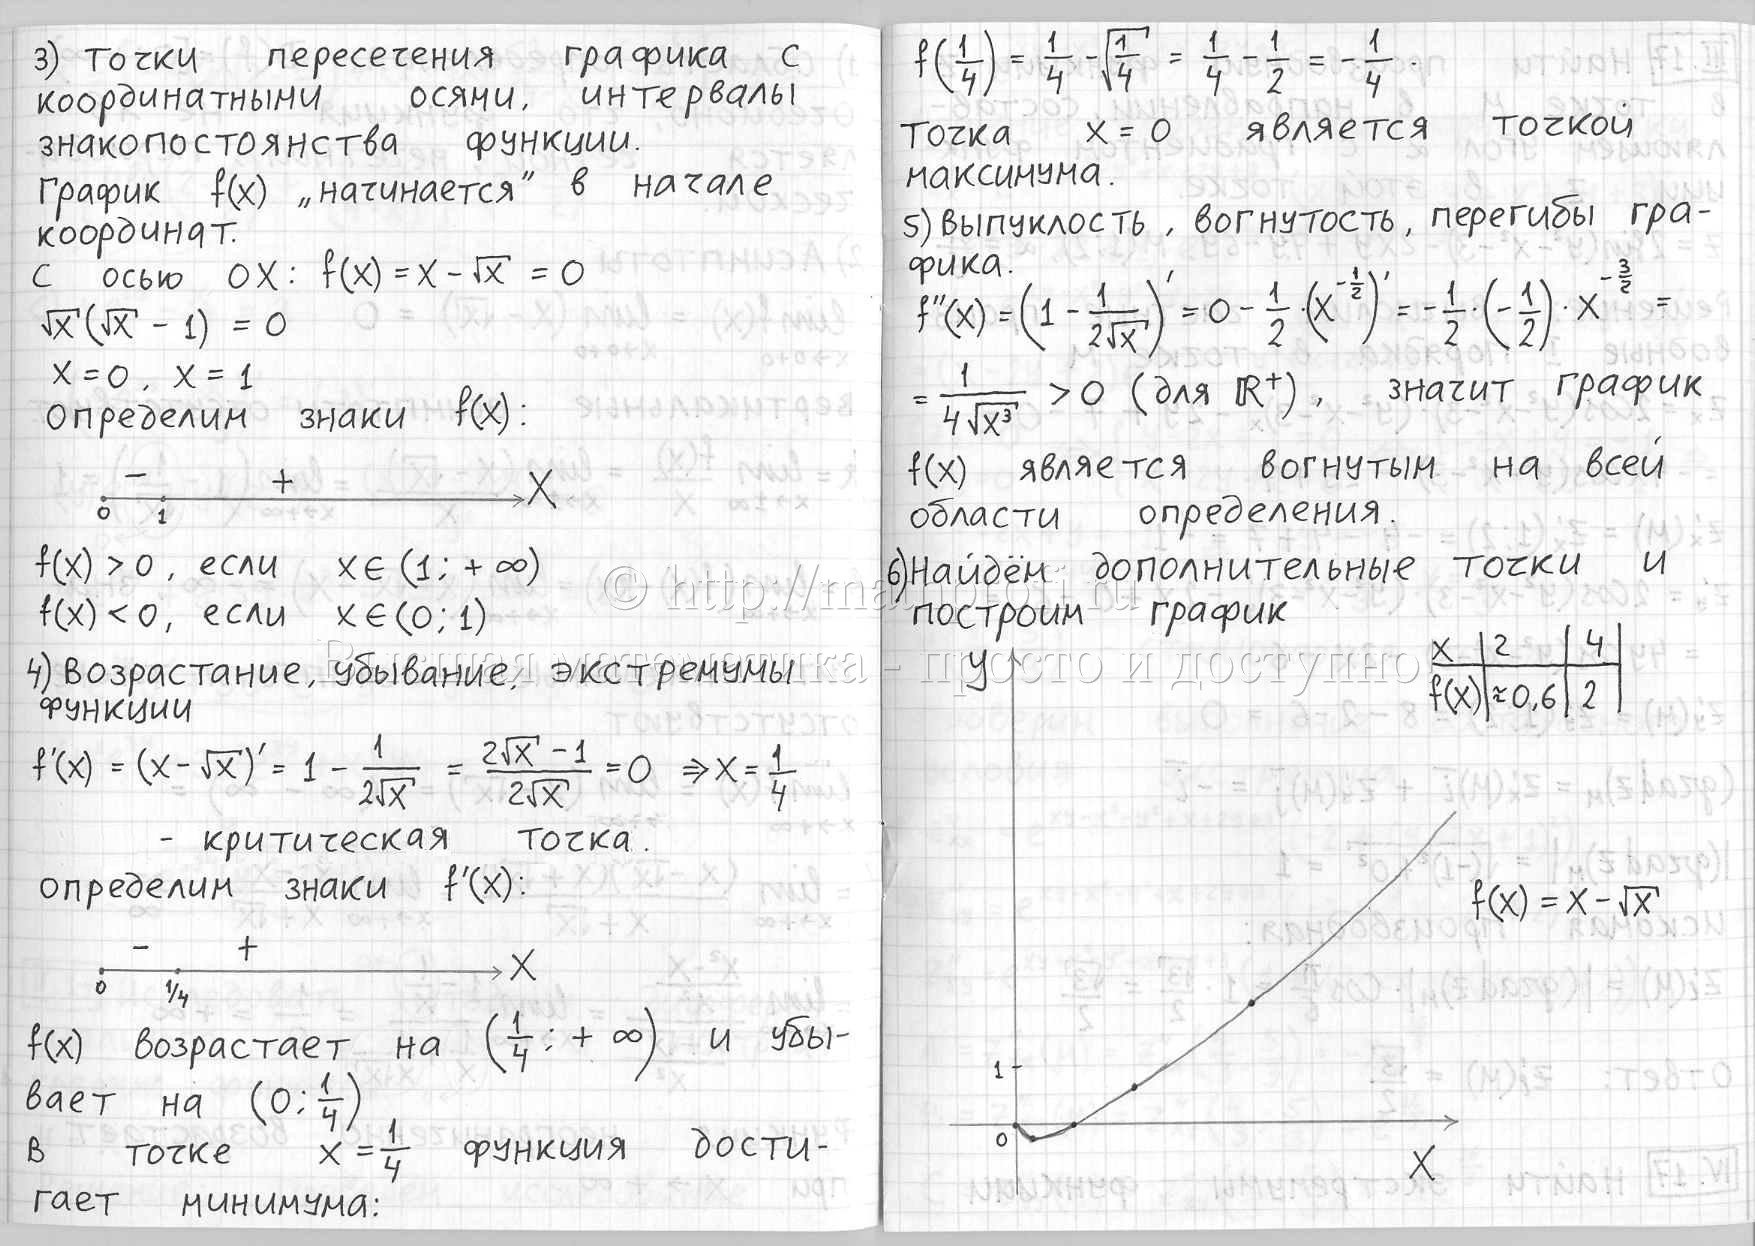 3) Точки пересечения графика с
координатными осями, интервалы
знакопостоянства функции.
График f(x) „начинается” в начале
координат.
С осью OX: f(x) = x - √x = 0
√x (√x - 1) = 0
x = 0, x = 1
Определим знаки f(x):
- +
0 1 X
f(x) > 0, если x ∈ (1; +∞)
f(x) < 0, если x ∈ (0; 1)
4) Возрастание, убывание, экстремумы
функции
f'(x) = (x - √x)' = 1 - 1/(2√x) = (2√x - 1)/(2√x) = 0 ⇒ x = 1/4
- критическая точка.
Определим знаки f'(x):
- +
0 1/4 X
f(x) возрастает на (1/4; +∞) и убы-
вает на (0; 1/4)
В точке x = 1/4 функция дости-
гает минимума:
f(1/4) = 1/4 - √(1/4) = 1/4 - 1/2 = -1/4.
Точка x = 0 является точкой
максимума.
5) Выпуклость, вогнутость, перегибы гра-
фика.
f''(x) = (1 - 1/(2√x))' = 0 - 1/2 · (x^(-1/2))' = -1/2 · (-1/2) · x^(-3/2) =
= 1/(4√x³) > 0 (для ℝ⁺), значит график
f(x) является вогнутым на всей
области определения.
6) Найдём дополнительные точки и
построим график
x | 2 | 4 |
f(x) | ≈0,6 | 2 |
y
f(x) = x - √x
1
0
X
© http://mathprofi.ru
Высшая математика - просто и доступно